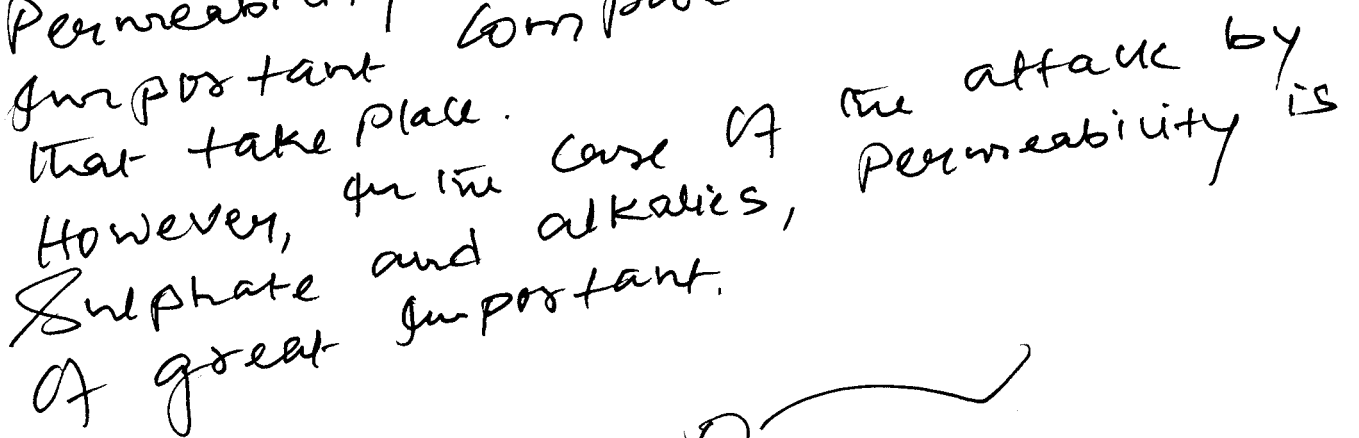 Permeability
Important
that take place.
However, In the case of the attack by
Sulphate and alkalies, Permeability is
of great Important.